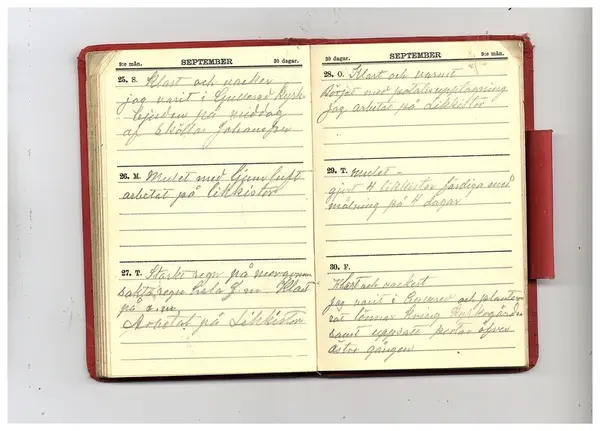 9:e mån. SEPTEMBER 30 dagar.
25. S. Klart och vacker
jag varit i Gullered Kyrk
på middag
af Johansson
26. M. Mulet med ljum luft
arbetat på Likkistor
27. T. Starkt regn på morgonen
sakta regn hela f.m. Klart
på e.m.
Arbetat på Likkistor
30 dagar. SEPTEMBER 9:e mån.
28. O. Klart och varmt
Börjat med potatisupptagning
Jag arbetat på Likkistor
29. T. Mulet -
gjort 4 likkistor färdiga med
målning på 4 dagar
30. F.
Klart och vackert
Jag varit i och planter
rat kring
samt uppsatt
östra gången